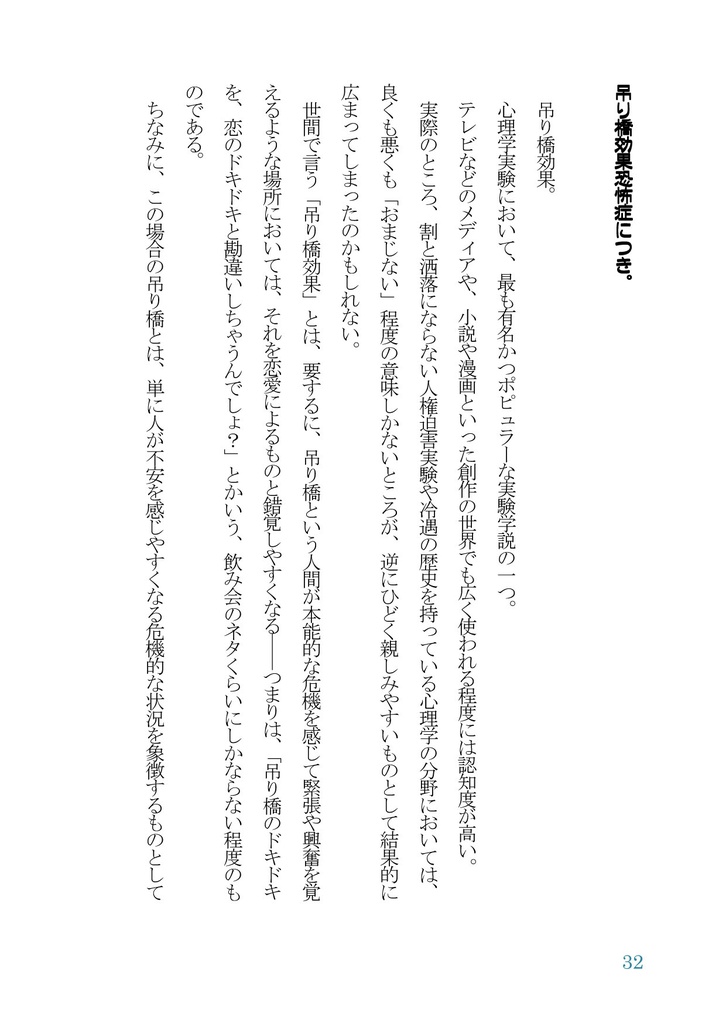 吊り橋効果恐怖症につき。
吊り橋効果。
心理学実験において、最も有名かつポピュラーな実験学説の一つ。
テレビなどのメディアや、小説や漫画といった創作の世界でも広く使われる程度には認知度が高い。
実際のところ、割と洒落にならない人権迫害実験や冷遇の歴史を持っている心理学の分野においては、
良くも悪くも「おまじない」程度の意味しかないところが、逆にひどく親しみやすいものとして結果的に
広まってしまったのかもしれない。
世間で言う「吊り橋効果」とは、要するに、吊り橋という人間が本能的な危機を感じて緊張や興奮を覚
えるような場所においては、それを恋愛によるものと錯覚しやすくなる――つまりは、「吊り橋のドキドキ
を、恋のドキドキと勘違いしちゃうんでしょ？」とかいう、飲み会のネタくらいにしかならない程度のも
のである。
ちなみに、この場合の吊り橋とは、単に人が不安を感じやすくなる危機的な状況を象徴するものとして
32